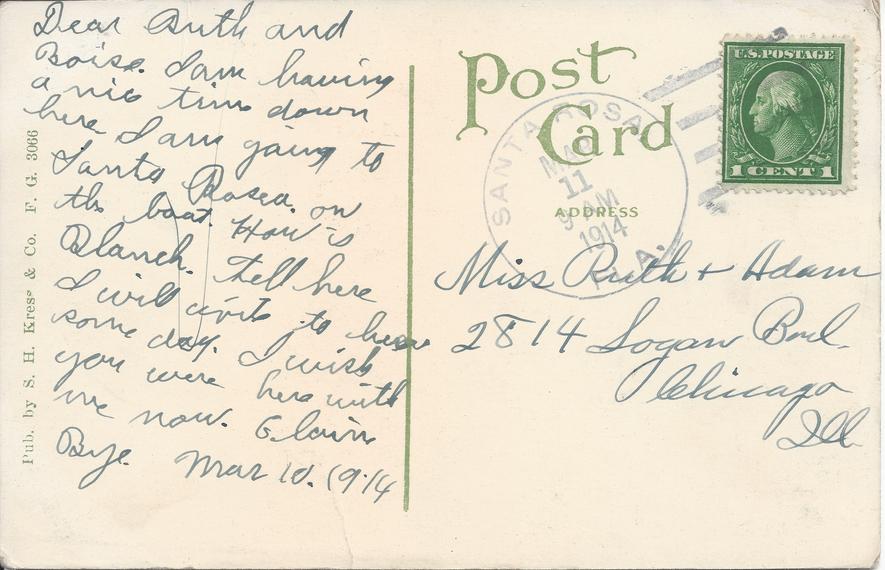 Dear Ruth and
Boise. I am having
a nic tim down
here I am going to
Santa Rosea. on
the boat. How is
Blanch. tell here
I will writ to here
some day. I wish
you were here with
me now. Glain
Bye. Mar 10. 1914
Pub. by S. H. Kress & Co. F. G. 3066
Post
Card
ADDRESS
U.S. POSTAGE
1 CENT 1
SANTA ROSA
MAR
11
9 AM
1914
FLA.
Miss Ruth + Adam
2814 Logan Boul.
Chicago
Ill